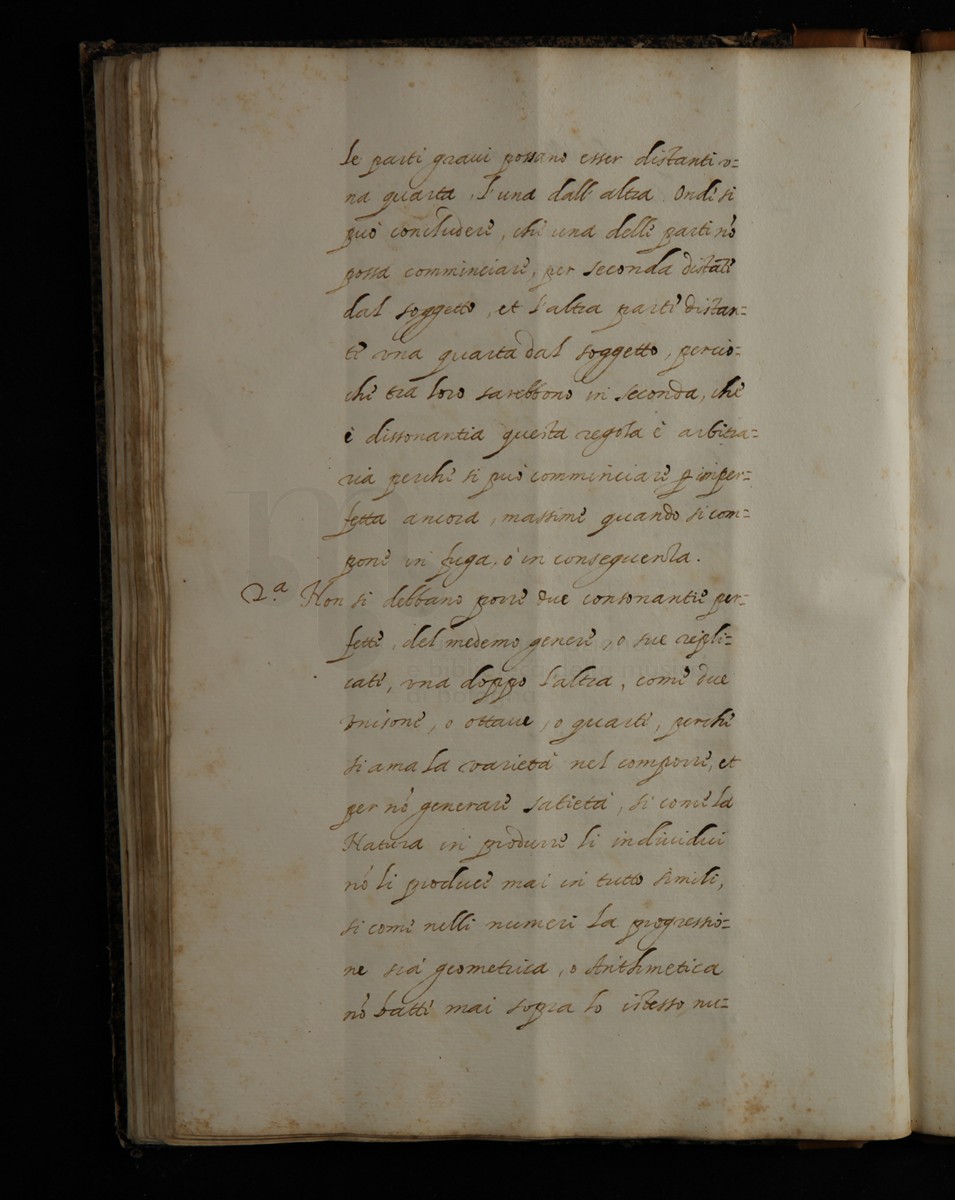 le parti graui possano esser distanti v=
na quarta, l'una dall' altra. Onde si
può concludere, che una delle parti nó
possa comminciare, per seconda distāte
dal soggetto, et l'altra parte distan=
te vna quarta dal soggetto, percio=
che tra loro sarebbono in seconda, che
è dissonantia questa regola è arbitra=
ria perche si può comminciare p imper=
fetta ancora, massime quando si com=
pone in fuga, ò in conseguenza.
2.a Non si debbano porre due consonantie per=
fette, del medemo genere, o sue repli=
cate, vna doppo l'altra, come due
vnisone, o ottaue, o quarte, perche
si ama la varietà nel comporre, et
per nó generare satietà, si come la
Natura in produrre li indiuidui
nó li produce mai in tutto simili,
si come nelli numeri la progressio=
ne sia geometrica, o Arithmetica
nó batte mai sopra lo istesso nu=